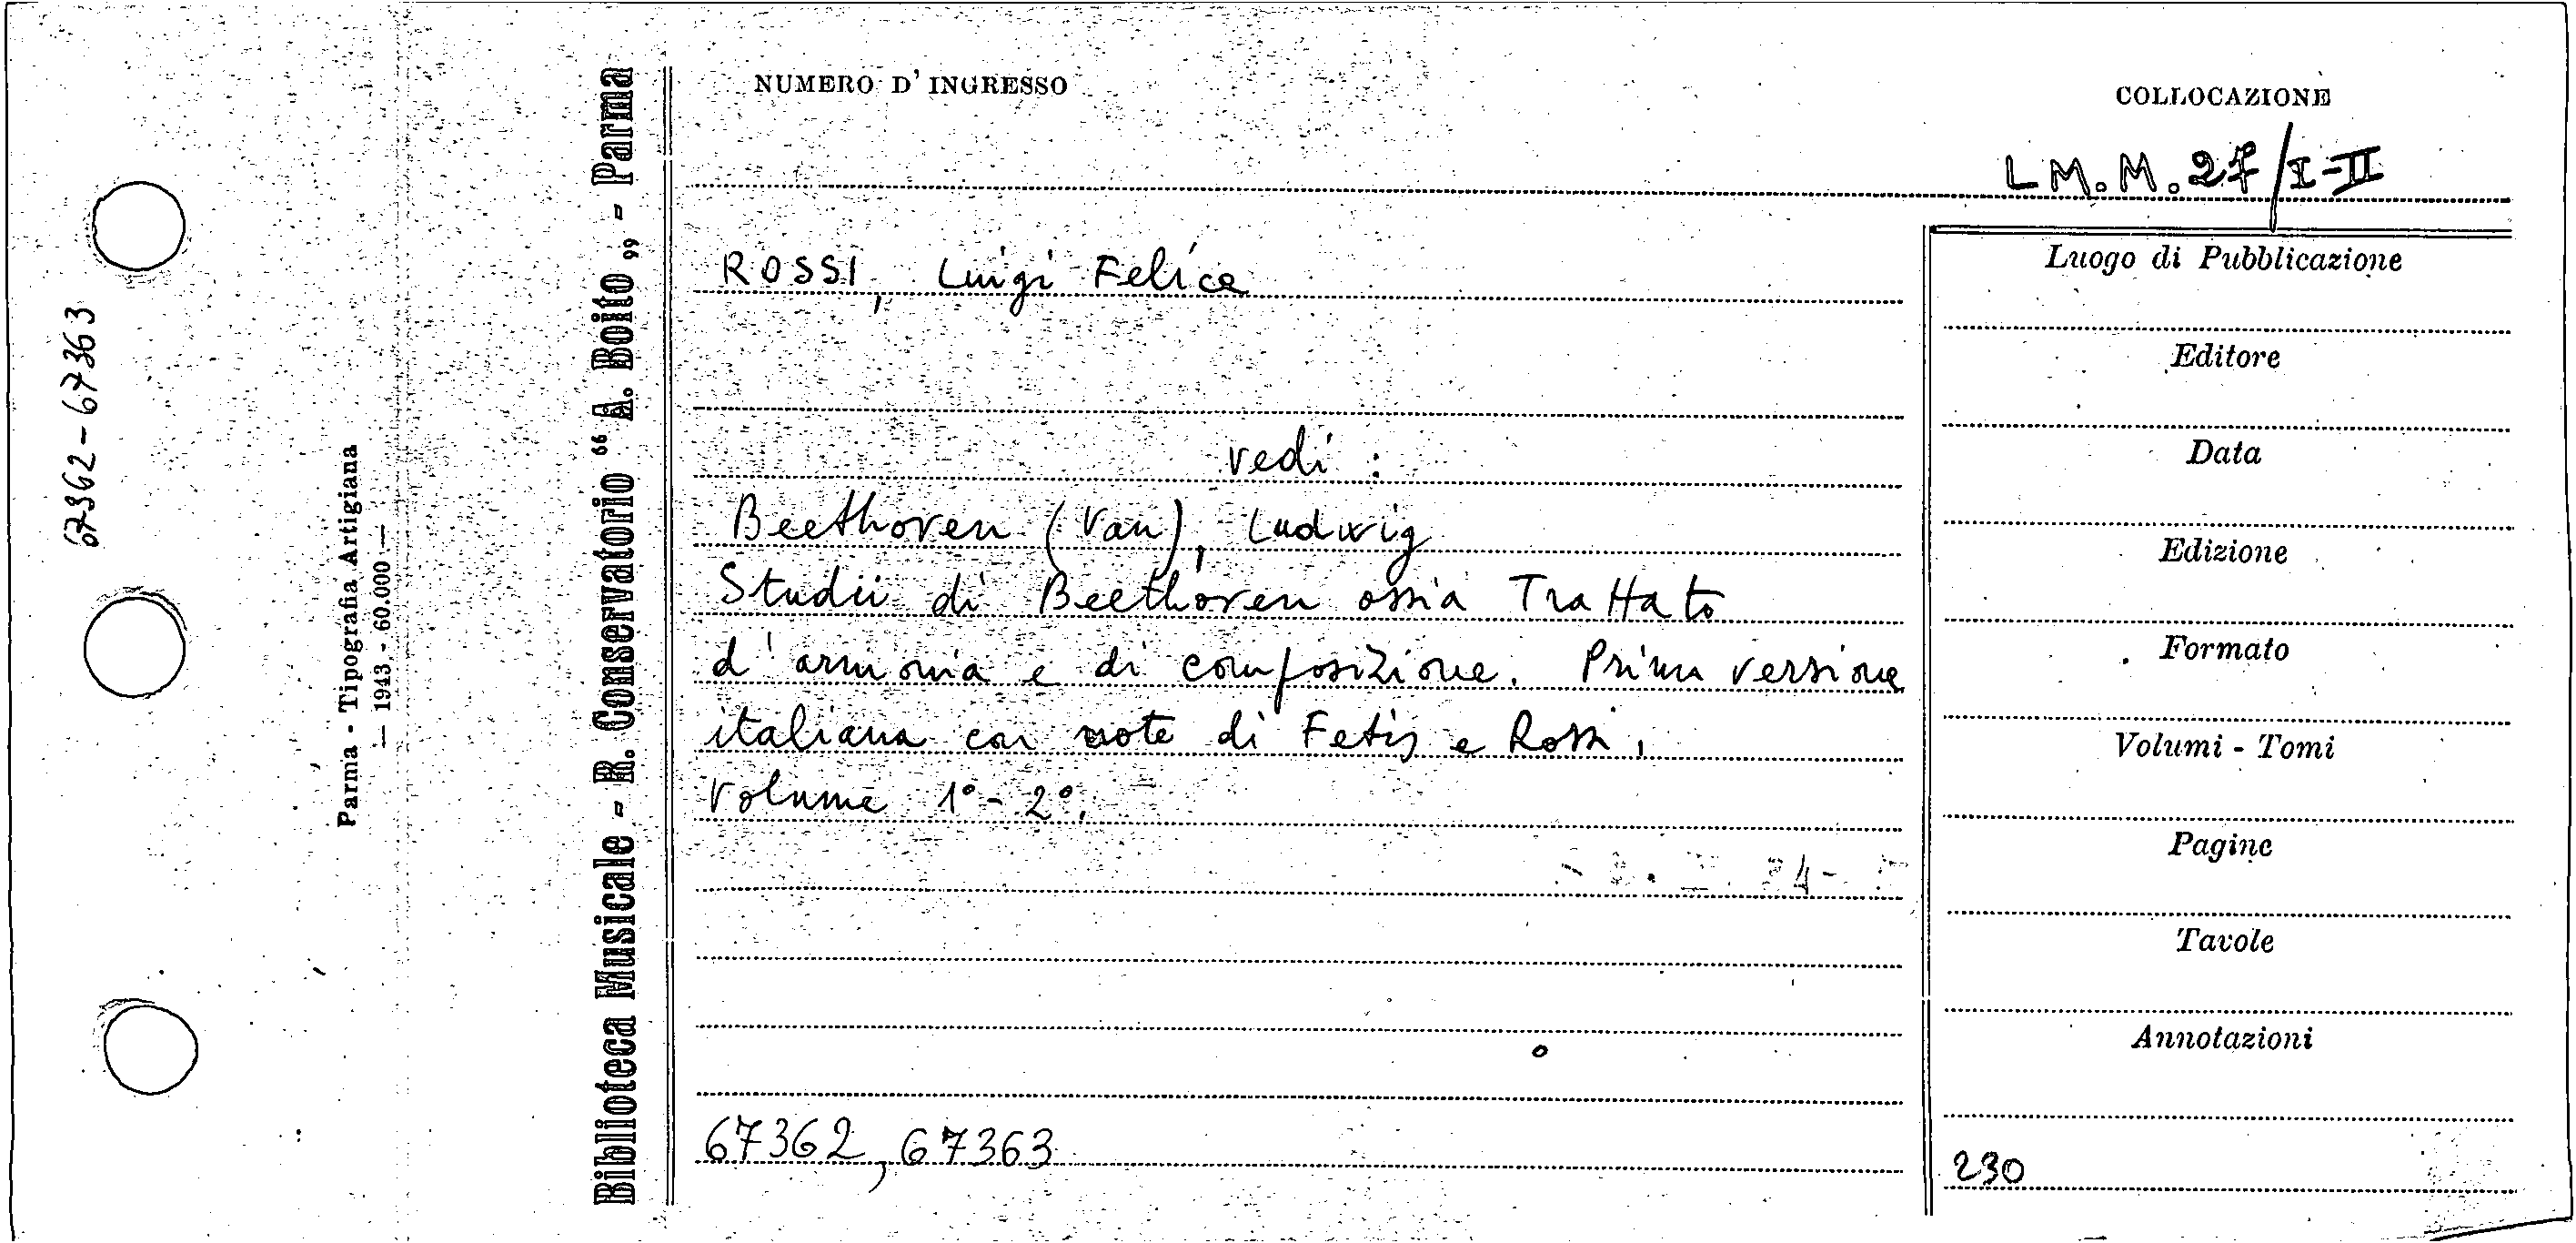 NUMERO D' INGRESSO
COLLOCAZIONE
L M. M. 27/I-II
67362-67363
Parma - Tipografia Artigiana
— 1943 - 60.000 —
Biblioteca Musicale - R. Conservatorio “ A. Boito „ - Parma
ROSSI, Luigi Felice
vedi :
Beethoven (Van), Ludwig
Studii di Beethoven ossia Trattato
d'armonia e di composizione. Prima versione
italiana con note di Fetis e Rossi.
Volume 1°- 2°.
67362, 67363
Luogo di Pubblicazione
Editore
Data
Edizione
Formato
Volumi - Tomi
Pagine
Tavole
Annotazioni
230